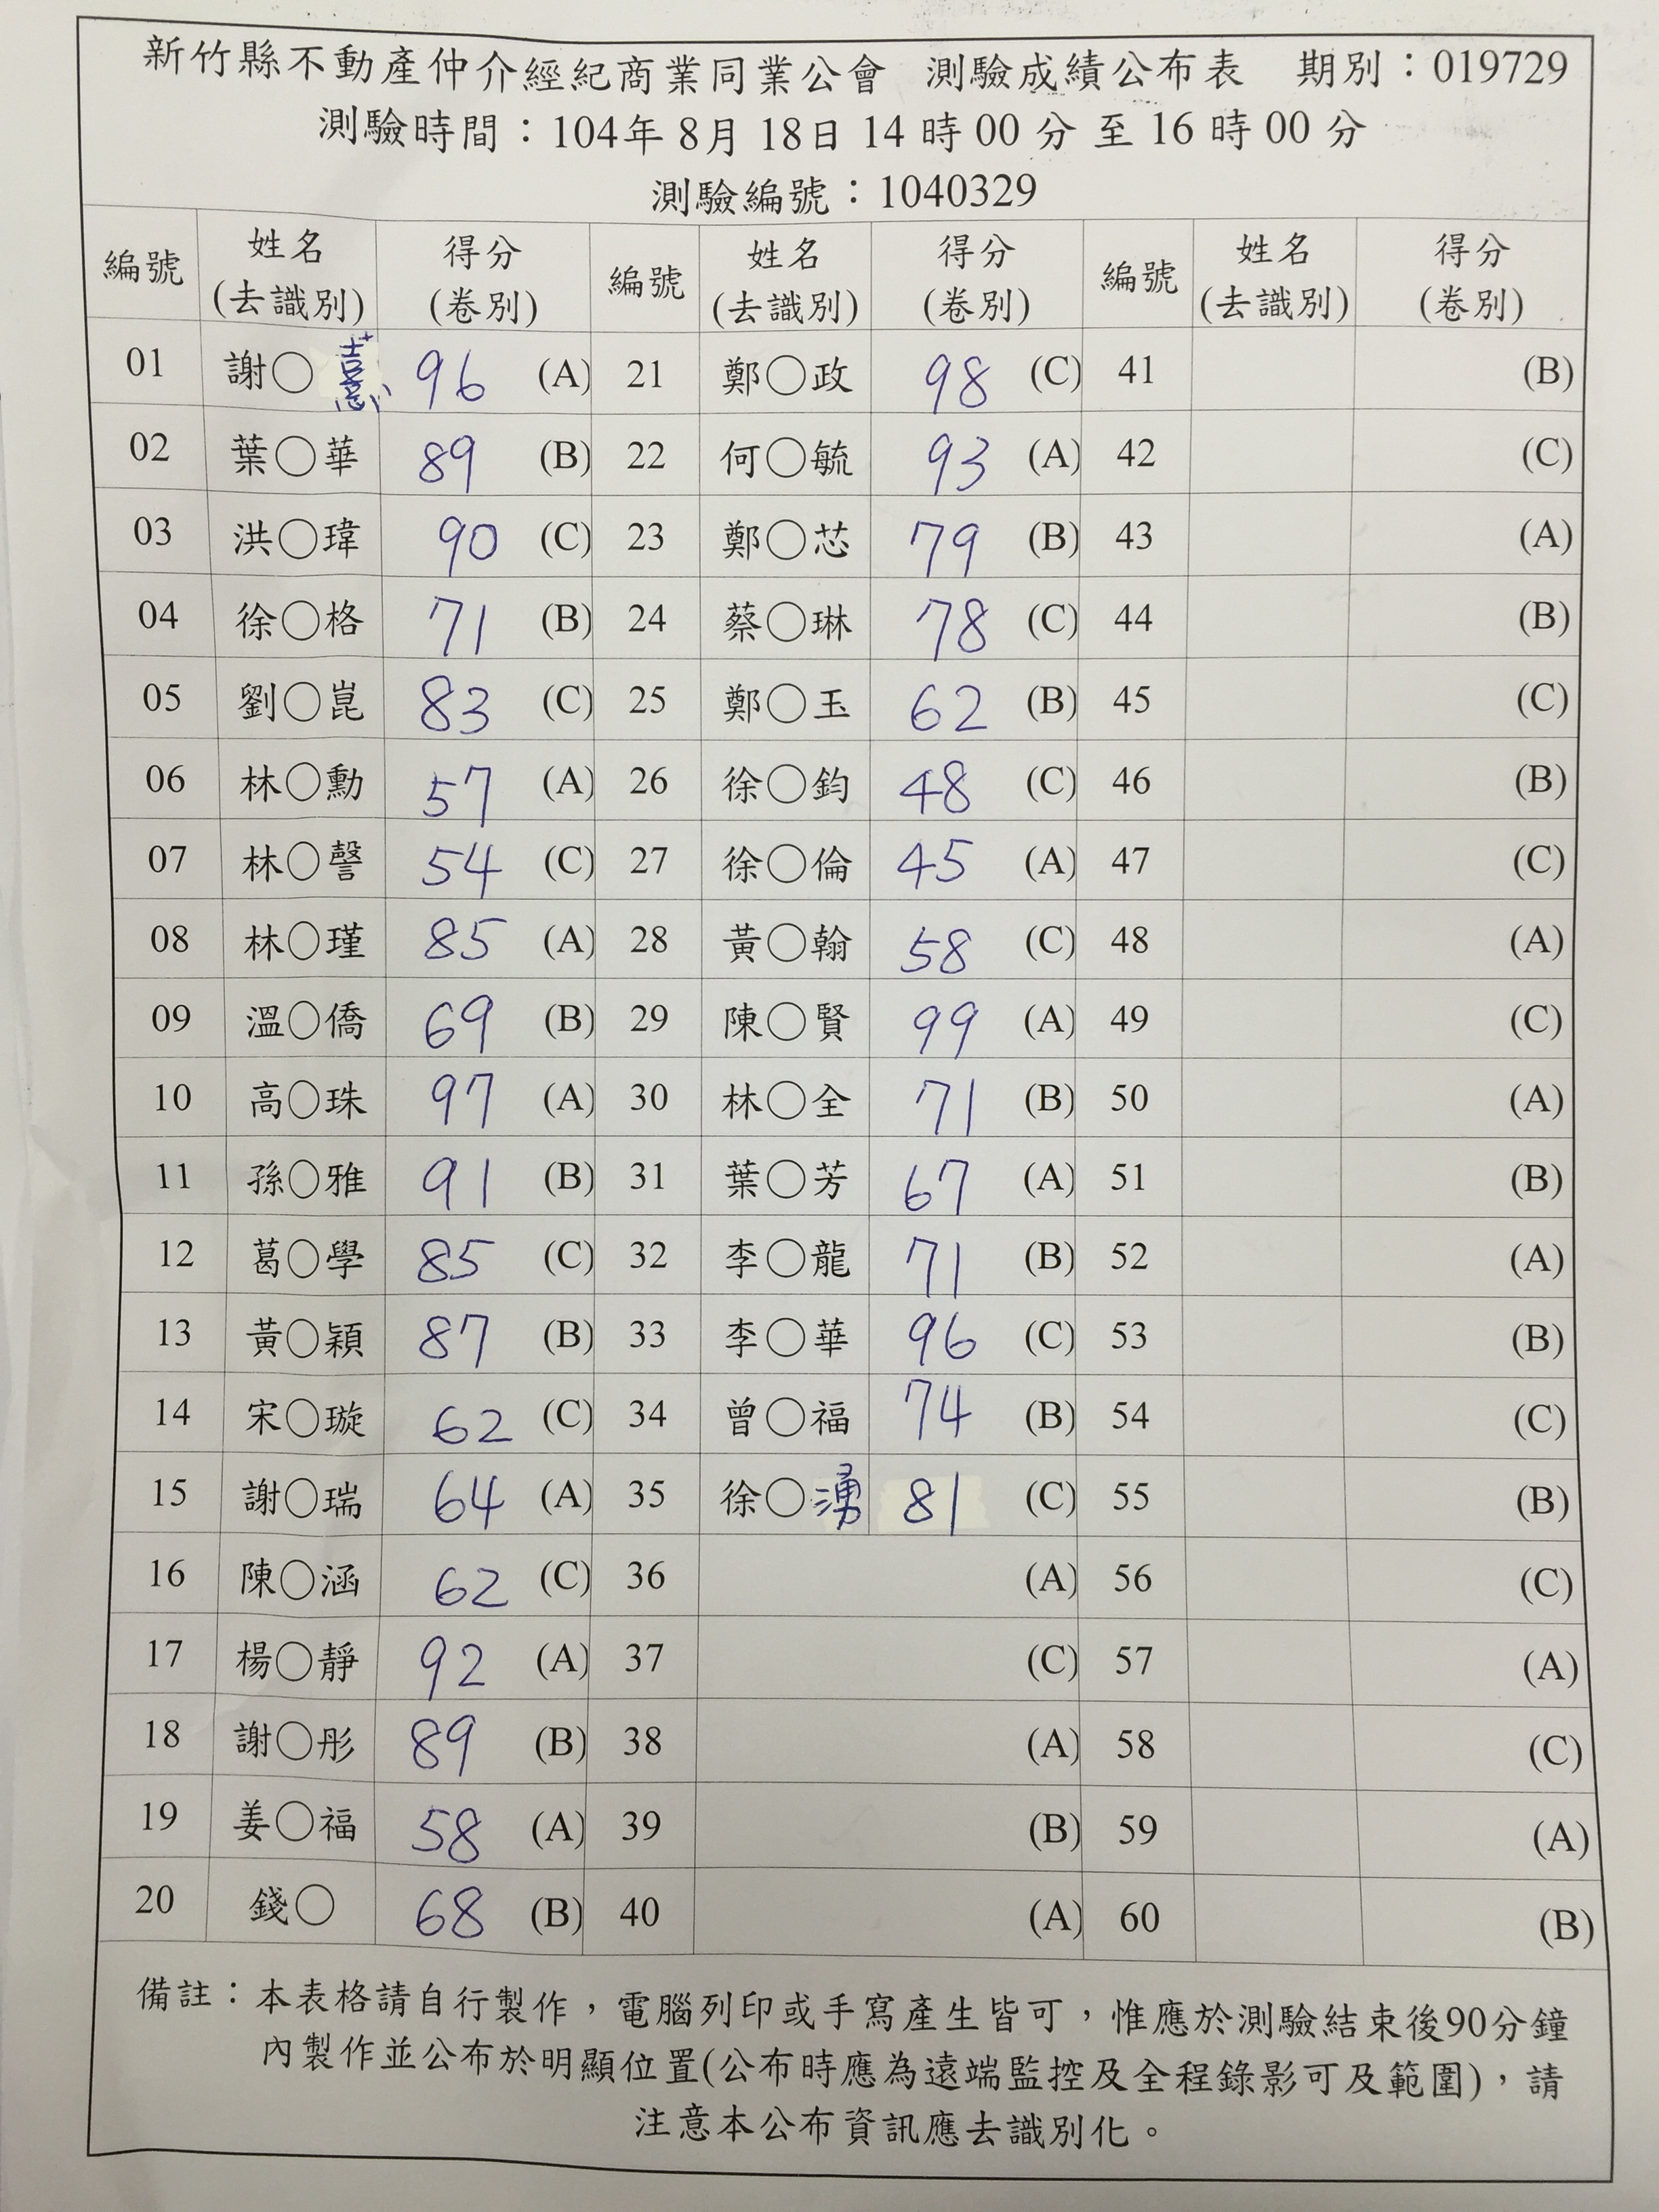 新竹縣不動產仲介經紀商業同業公會 測驗成績公布表 期別：019729
測驗時間：104年 8月 18日 14 時 00 分 至 16 時 00 分
測驗編號：1040329
編號 姓名(去識別) 得分(卷別) 編號 姓名(去識別) 得分(卷別) 編號 姓名(去識別) 得分(卷別)
01 謝○憙 96 (A) 21 鄭○政 98 (C) 41 (B)
02 葉○華 89 (B) 22 何○毓 93 (A) 42 (C)
03 洪○瑋 90 (C) 23 鄭○芯 79 (B) 43 (A)
04 徐○格 71 (B) 24 蔡○琳 78 (C) 44 (B)
05 劉○崑 83 (C) 25 鄭○玉 62 (B) 45 (C)
06 林○勳 57 (A) 26 徐○鈞 48 (C) 46 (B)
07 林○謦 54 (C) 27 徐○倫 45 (A) 47 (C)
08 林○瑾 85 (A) 28 黃○翰 58 (C) 48 (A)
09 溫○僑 69 (B) 29 陳○賢 99 (A) 49 (C)
10 高○珠 97 (A) 30 林○全 71 (B) 50 (A)
11 孫○雅 91 (B) 31 葉○芳 67 (A) 51 (B)
12 葛○學 85 (C) 32 李○龍 71 (B) 52 (A)
13 黃○穎 87 (B) 33 李○華 96 (C) 53 (B)
14 宋○璇 62 (C) 34 曾○福 74 (B) 54 (C)
15 謝○瑞 64 (A) 35 徐○湧 81 (C) 55 (B)
16 陳○涵 62 (C) 36 (A) 56 (C)
17 楊○靜 92 (A) 37 (C) 57 (A)
18 謝○彤 89 (B) 38 (A) 58 (C)
19 姜○福 58 (A) 39 (B) 59 (A)
20 錢○ 68 (B) 40 (A) 60 (B)
備註：本表格請自行製作，電腦列印或手寫產生皆可，惟應於測驗結束後90分鐘
內製作並公布於明顯位置(公布時應為遠端監控及全程錄影可及範圍)，請
注意本公布資訊應去識別化。